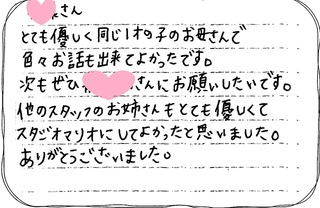 さん
とても優しく同じ1才の子のお母さんで
色々お話も出来てよかったです。
次もぜひ さんにお願いしたいです。
他のスタッフのお姉さんもとても優しくて
スタジオマリオにしてよかったと思いました。
ありがとうございました。